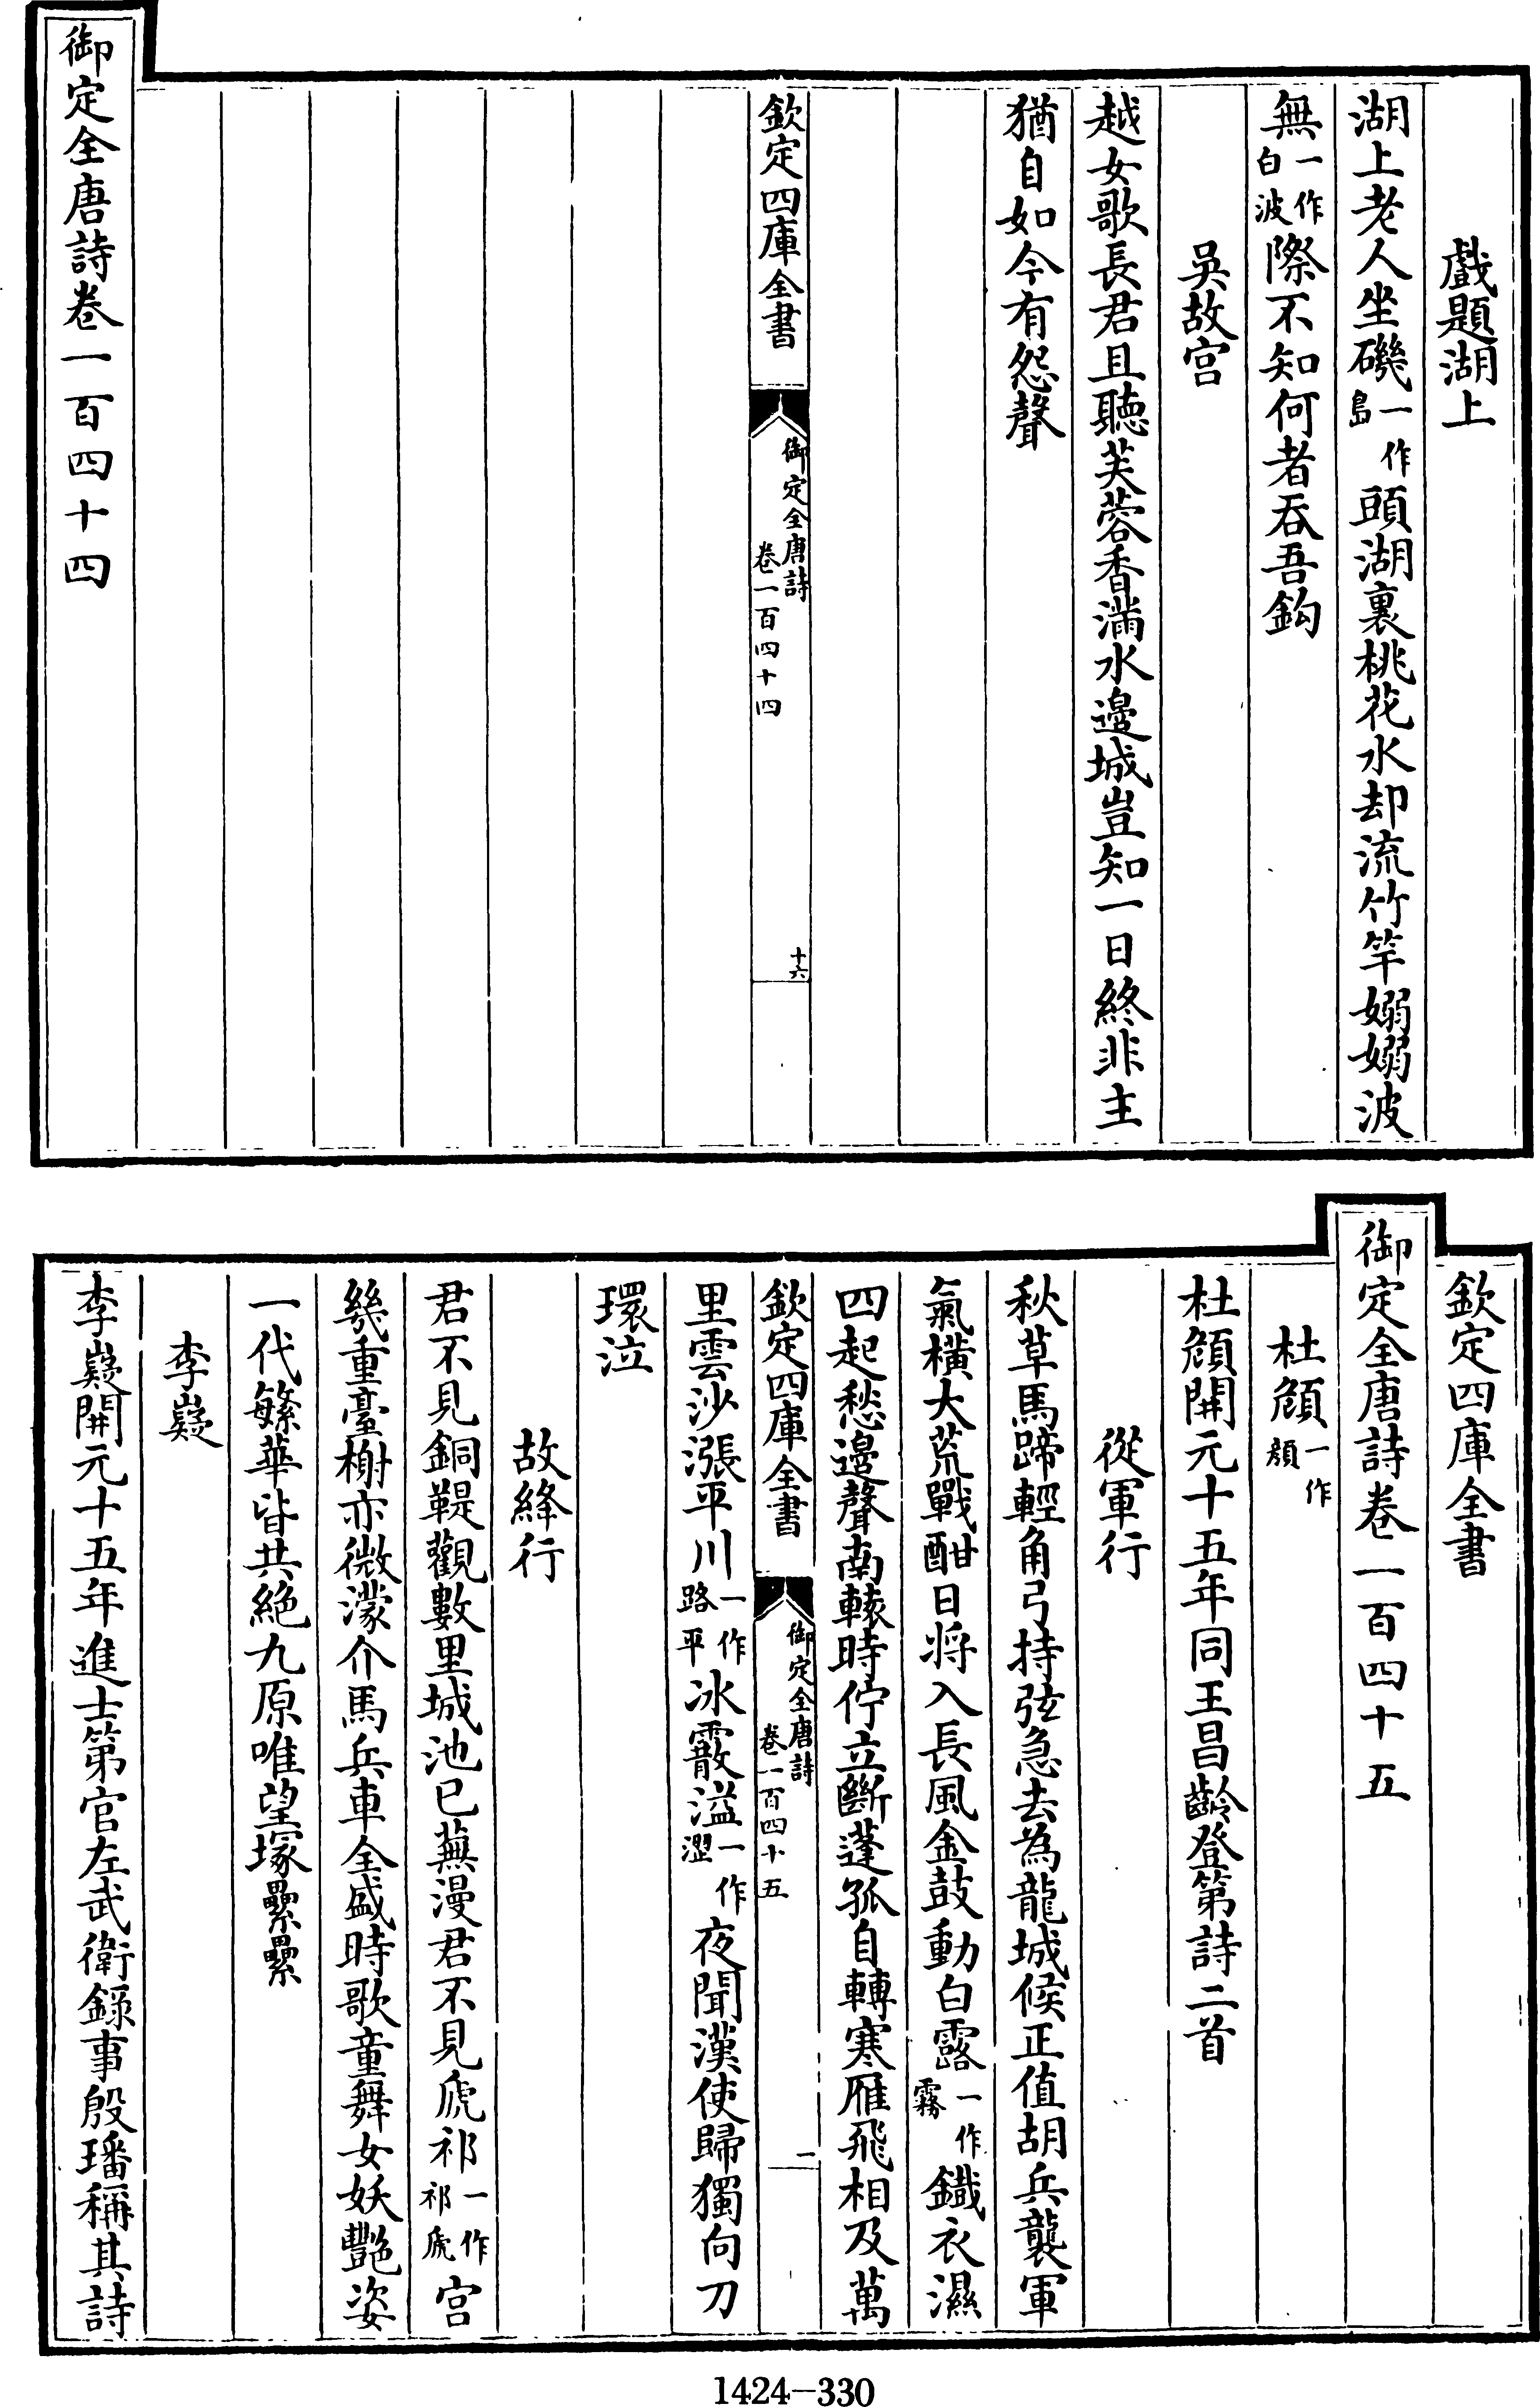 戲題湖上
湖上老人坐磯一作島頭湖裏桃花水却流竹竿嫋嫋波
無一作白波際不知何者吞吾鈎
吳故宫
越女歌長君且聽芙蓉香滿水邊城豈知一日終非主
猶自如今有怨聲
欽定四庫全書
御定全唐詩
卷一百四十四
十六
御定全唐詩卷一百四十四
欽定四庫全書
御定全唐詩卷一百四十五
杜頠一作顏
杜頠開元十五年同王昌齡登第詩二首
從軍行
秋草馬蹄輕角弓持弦急去為龍城候正值胡兵襲軍
氣横大荒戰酣日將入長風金鼓動白露一作霧鐵衣濕
四起愁邊聲南轅時佇立斷蓬孤自轉寒雁飛相及萬
欽定四庫全書
御定全唐詩
卷一百四十五
一
里雲沙漲平川一作路平冰霰溢一作澀夜聞漢使歸獨向刀
環泣
故絳行
君不見銅鞮觀數里城池已蕪漫君不見虒祁一作祁虒宫
幾重臺榭亦微濛介馬兵車全盛時歌童舞女妖艷姿
一代繁華皆共絶九原唯望塚纍纍
李嶷
李嶷開元十五年進士第官左武衛録事殷璠稱其詩
1424-330